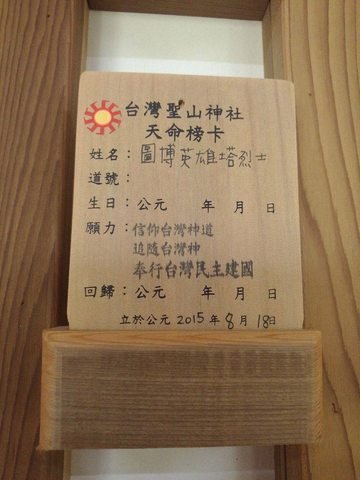 台灣聖山神社
天命榜卡
姓名：圖博英雄塔烈士
道號：
生日：公元 年 月 日
願力：信仰台灣神道
追隨台灣神
奉行台灣民主建國
回歸：公元 年 月 日
立於公元 2015 年 8 月 18 日